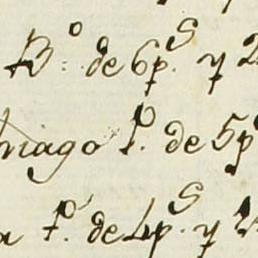 Bº: de 6p.S y 2
niago P. de 5p
a P. de 4p.S y 2